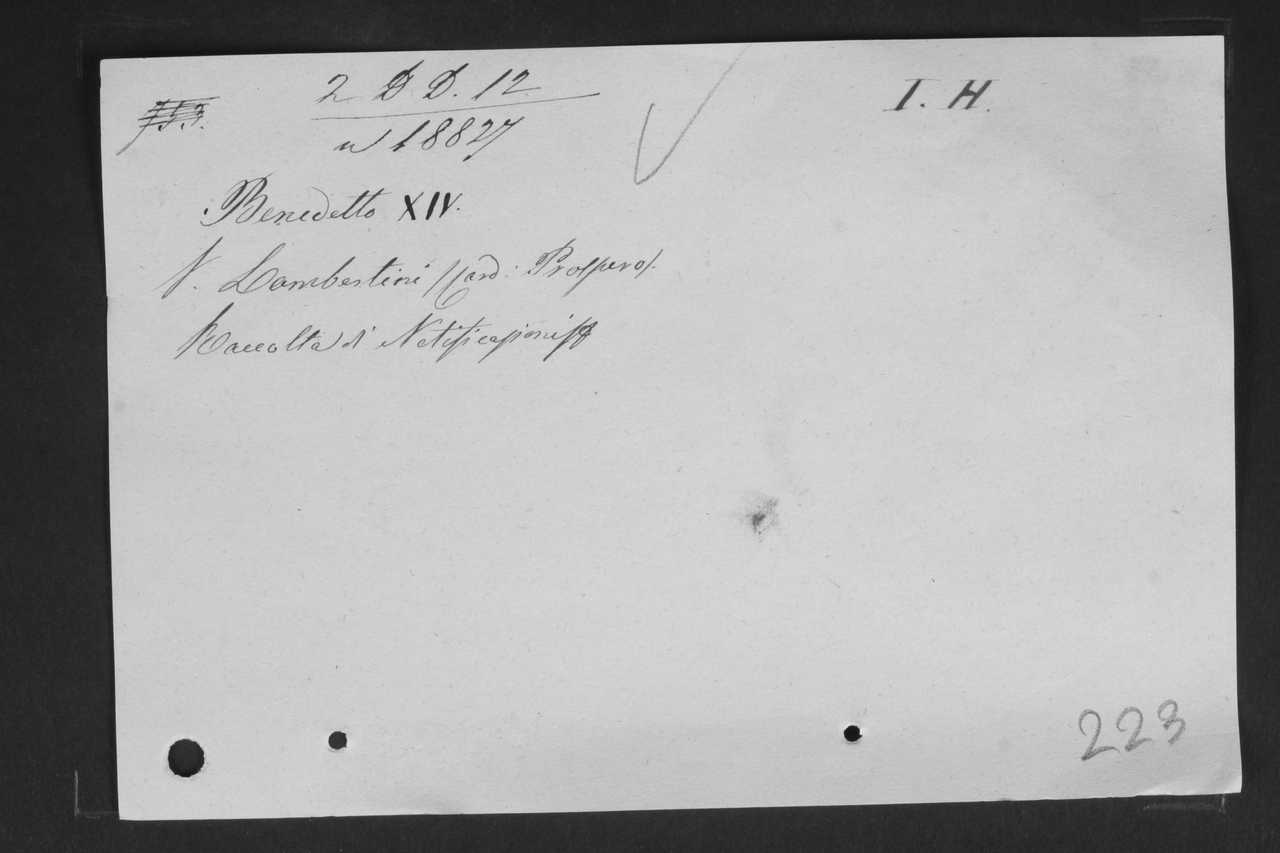 2 D D. 12
I. H.
753.
18827
Benedetto XIV.
V. Lambertini /Card: Prospero/.
Raccolta di Notificazioni
223